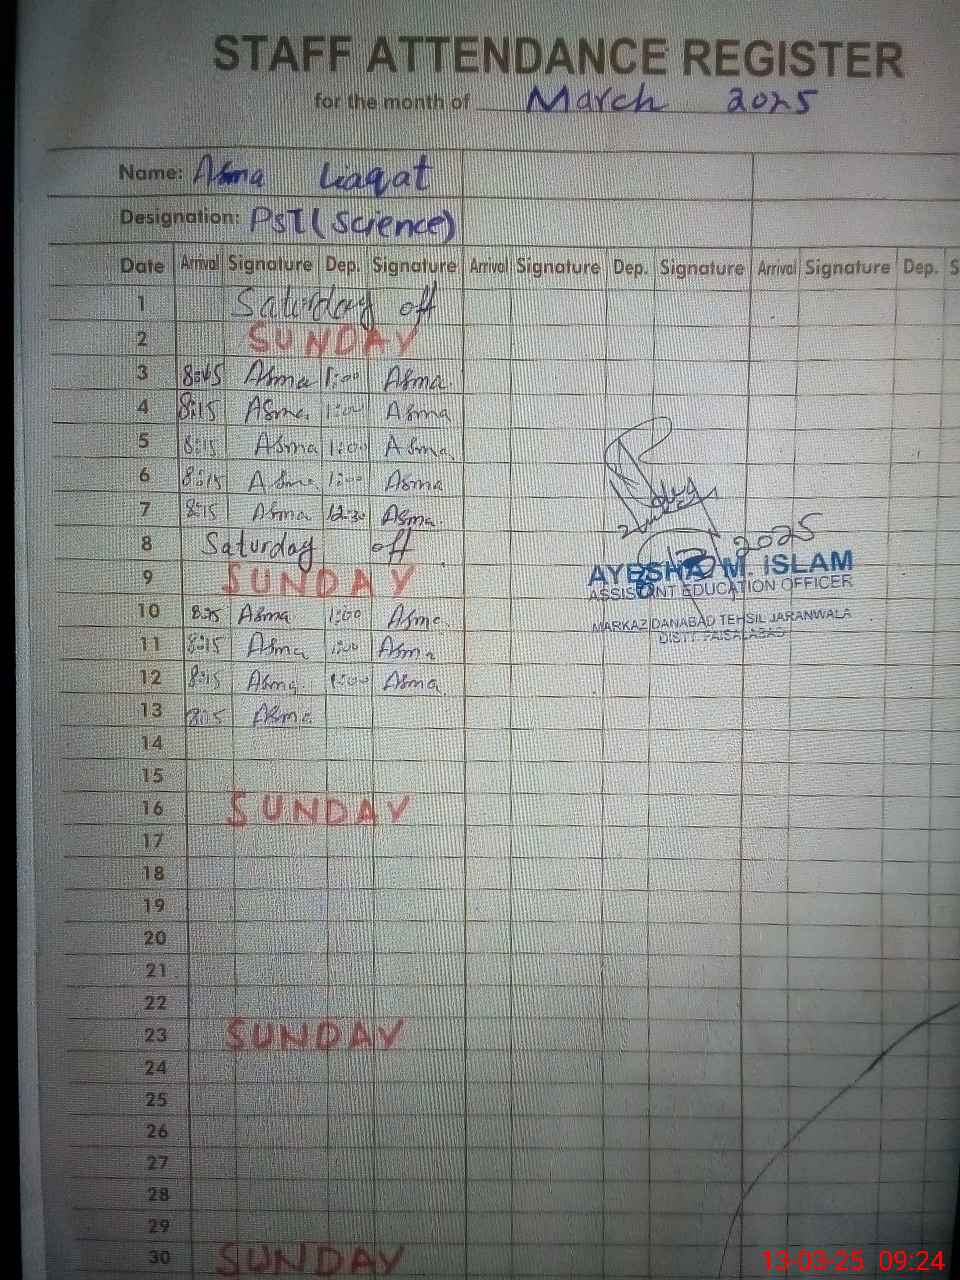 STAFF ATTENDANCE REGISTER
for the month of March 2025
Name: Asma Liaqat
Designation: PST (Science)
Date Arrival Signature Dep. Signature Arrival Signature Dep. Signature Arrival Signature Dep. S
1 Saturday off
2 SUNDAY
3 8:45 Asma 1:00 Asma
4 8:15 Asma 1:00 Asma
5 8:15 Asma 1:00 Asma
6 8:15 Asma 1:00 Asma
7 8:15 Asma 12:30 Asma
8 Saturday off
2025
9 SUNDAY
AYESHA M. ISLAM
ASSISTANT EDUCATION OFFICER
MARKAZ DANABAD TEHSIL JARANWALA
DISTT. FAISALABAD
10 Asma 1:00 Asma
11 8:15 Asma 1:00 Asma
12 8:15 Asma 1:00 Asma
13 Asma
14
15
16 SUNDAY
17
18
19
20
21
22
23 SUNDAY
24
25
26
27
28
29
30 SUNDAY
13-03-25 09:24